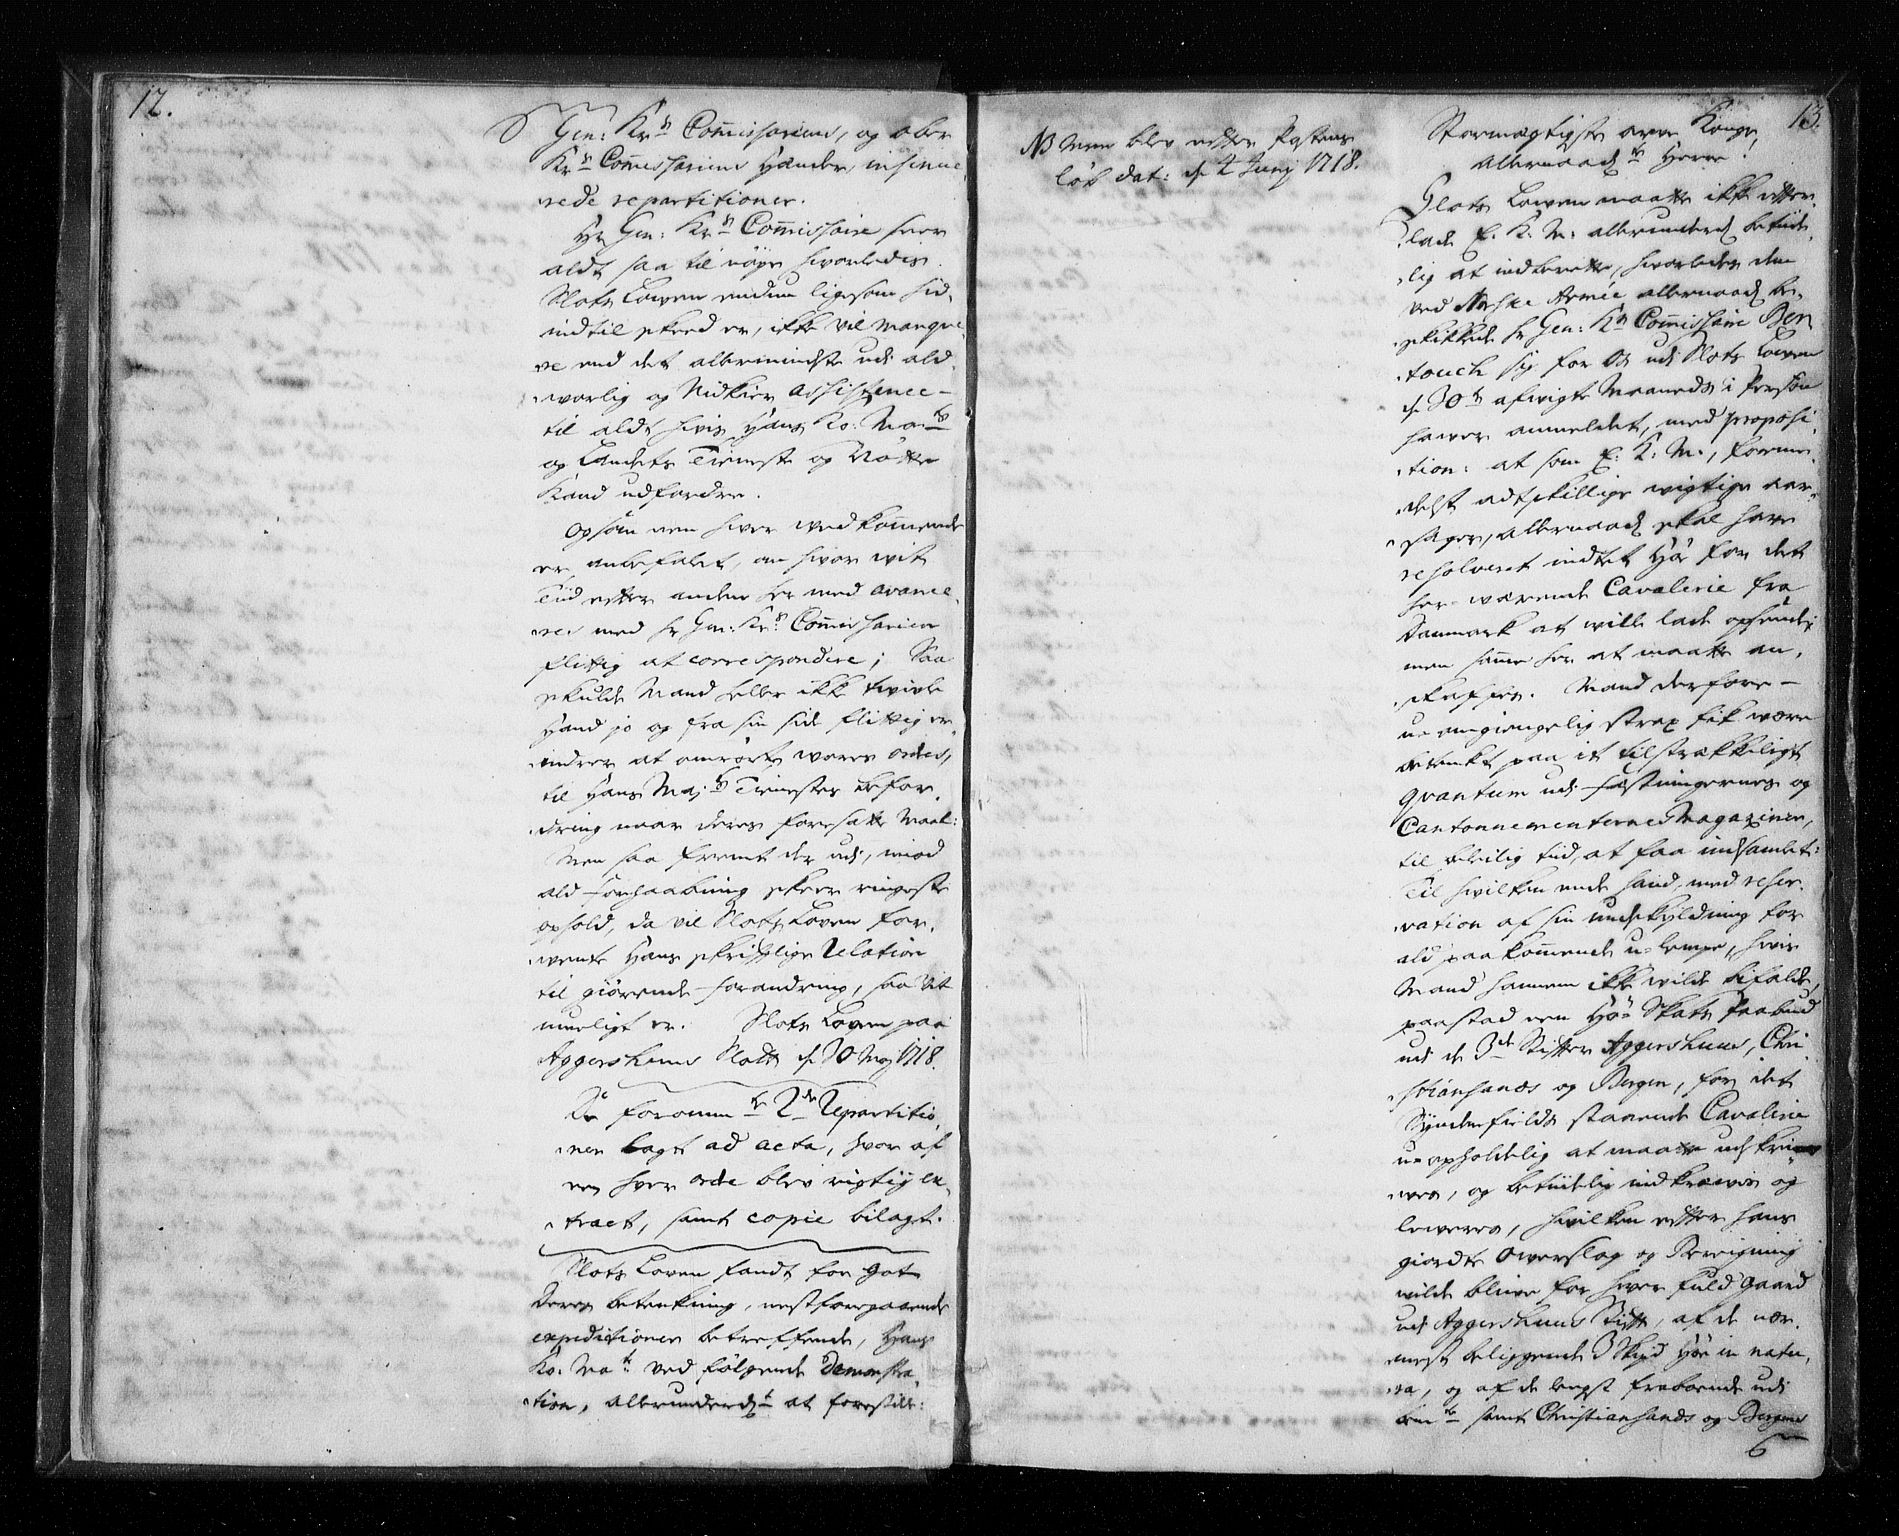 12.
Gen: Krs Commissariens, og ober
Krs Commissariens Hænder, insinue,
rede repartitioner.
Hr Gen: Krs Commissaire seer
aldt saa til nöye hvorledis
Slots Lowen endnu ligesom hid,
indtil skeed er, ikke vil manque,
re med det allermindste udi ald,
vorlig og Nidkier assistence
til aldt hvis Hans Ko: Mats
og Landets Tieneste og Nötte
Kand udfordre.
Opsom een hver vedkommende
er anbefalet, om hvor vit
Tiid efter anden her med avance,
res med hr Gen: Krs Commissarien
flittig at correspondere; Saa
skulde Mand heller ikke tvivle
Hand jo og fra sin side flittig er,
indrer at omrörte vores ordres,
til Hans Majts Tienestes befor,
dring naar deres foresatte Maal:
Men saa fremt der udi, imod
ald forhaabning skeer ringeste
ophold, da vil Slots Loven for,
vente Hans skriftlige Relation
til giörende forandring, saa vit
mueligt er. Slots Loven paa
Aggershuus Slott d. 30 Maj 1718.
De foromte 2de Repartitio,
ner laget ad acta, hvor af
en hver ordre blev rigtig ex,
tract, samt copie bilagt.
Slots Loven fandt for got
Deres betenkning, nestforegaaende
expeditioner betreffende, Hans
Ko: Mat ved fölgende Demonstra,
tion, allerunderdt at forestille:
NB Men blev efter Postens
löb dat: d. 4 Junj 1718.
13.
Stormægtigste arve Konge,
allernaadte Herre.
Slots Lowen maatte ikke efter,
lade E. K. M: allerunderd betiide,
lig at indberette, hvorledes den
ved Norske Armée allernaad be,
skikkede hr Gen: Krs Commissaire Ben
touch sig for Os udi Slots Lowen
d. 30te afvigte Maaneds i Person
hawer anmeldet, med proposi,
tion: at som E: K: M:, forme,
delst adskillige wigtige aar,
sager, allernaad skal have
resolveret indtet Höe for det
her værende Cavalerie fra
Danmark at wille lade opsende,
men samme her at maatte an,
skaffes. Mand derfore
u-omgiengelig strax fik være
betenkt paa it tilstrækkeligt
Qvantum udi fæstningernes og
Cantonnementernes Magaziner,
til beleilig tiid, at faa indsamlet:
Til hvilken ende hand, med reser,
vation af sin undskyldning for
ald paakommende u-lempe, hvis
Mand hannem ikke wilde bifalde,
paastod een Höe Skats Paabud
udi de 3de Stifter Aggershuus, Chri,
stiansands og Bergen, for det
Syndenfields staaende Cavalerie
u-opholdelig at maatte udskri
ves, og betiidelig indkrævis og
leveres, hvilken efter hans
giordte Overslag og Bereigning
wilde blive for hver fuld gaard
udi Aggershuus Stift, af de nær,
mest beliggende 3 Skpd Höe in natu,
ra, og af de lengst fraboende udi
samt Christiansands og Bergens